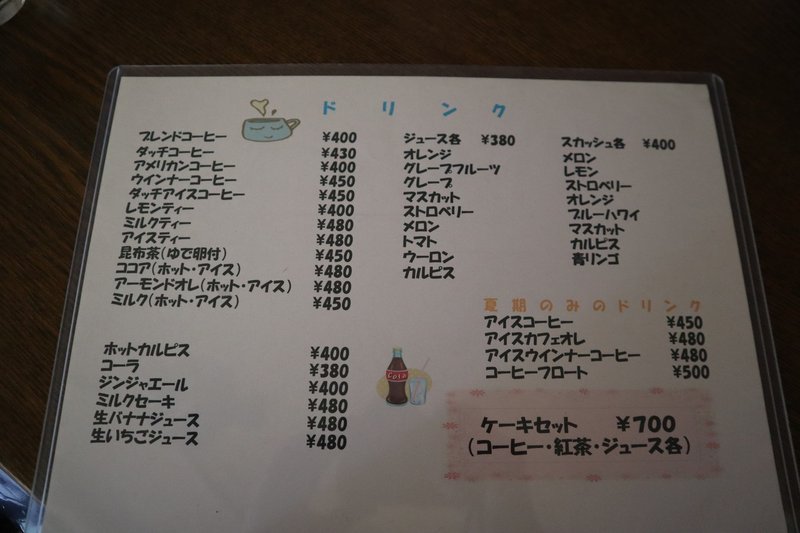 ドリンク
ブレンドコーヒー ¥400
ダッチコーヒー ¥430
アメリカンコーヒー ¥400
ウインナーコーヒー ¥450
ダッチアイスコーヒー ¥450
レモンティー ¥400
ミルクティー ¥480
アイスティー ¥480
昆布茶(ゆで卵付) ¥450
ココア(ホット・アイス) ¥480
アーモンドオレ(ホット・アイス) ¥480
ミルク(ホット・アイス) ¥450
ホットカルピス ¥400
コーラ ¥380
ジンジャエール ¥400
ミルクセーキ ¥480
生バナナジュース ¥480
生いちごジュース ¥480
ジュース各 ¥380
オレンジ
グレープフルーツ
グレープ
マスカット
ストロベリー
メロン
トマト
ウーロン
カルピス
Cola
スカッシュ各 ¥400
メロン
レモン
ストロベリー
オレンジ
ブルーハワイ
マスカット
カルピス
青リンゴ
夏期のみのドリンク
アイスコーヒー ¥450
アイスカフェオレ ¥480
アイスウインナーコーヒー ¥480
コーヒーフロート ¥500
ケーキセット ¥700
(コーヒー・紅茶・ジュース各)